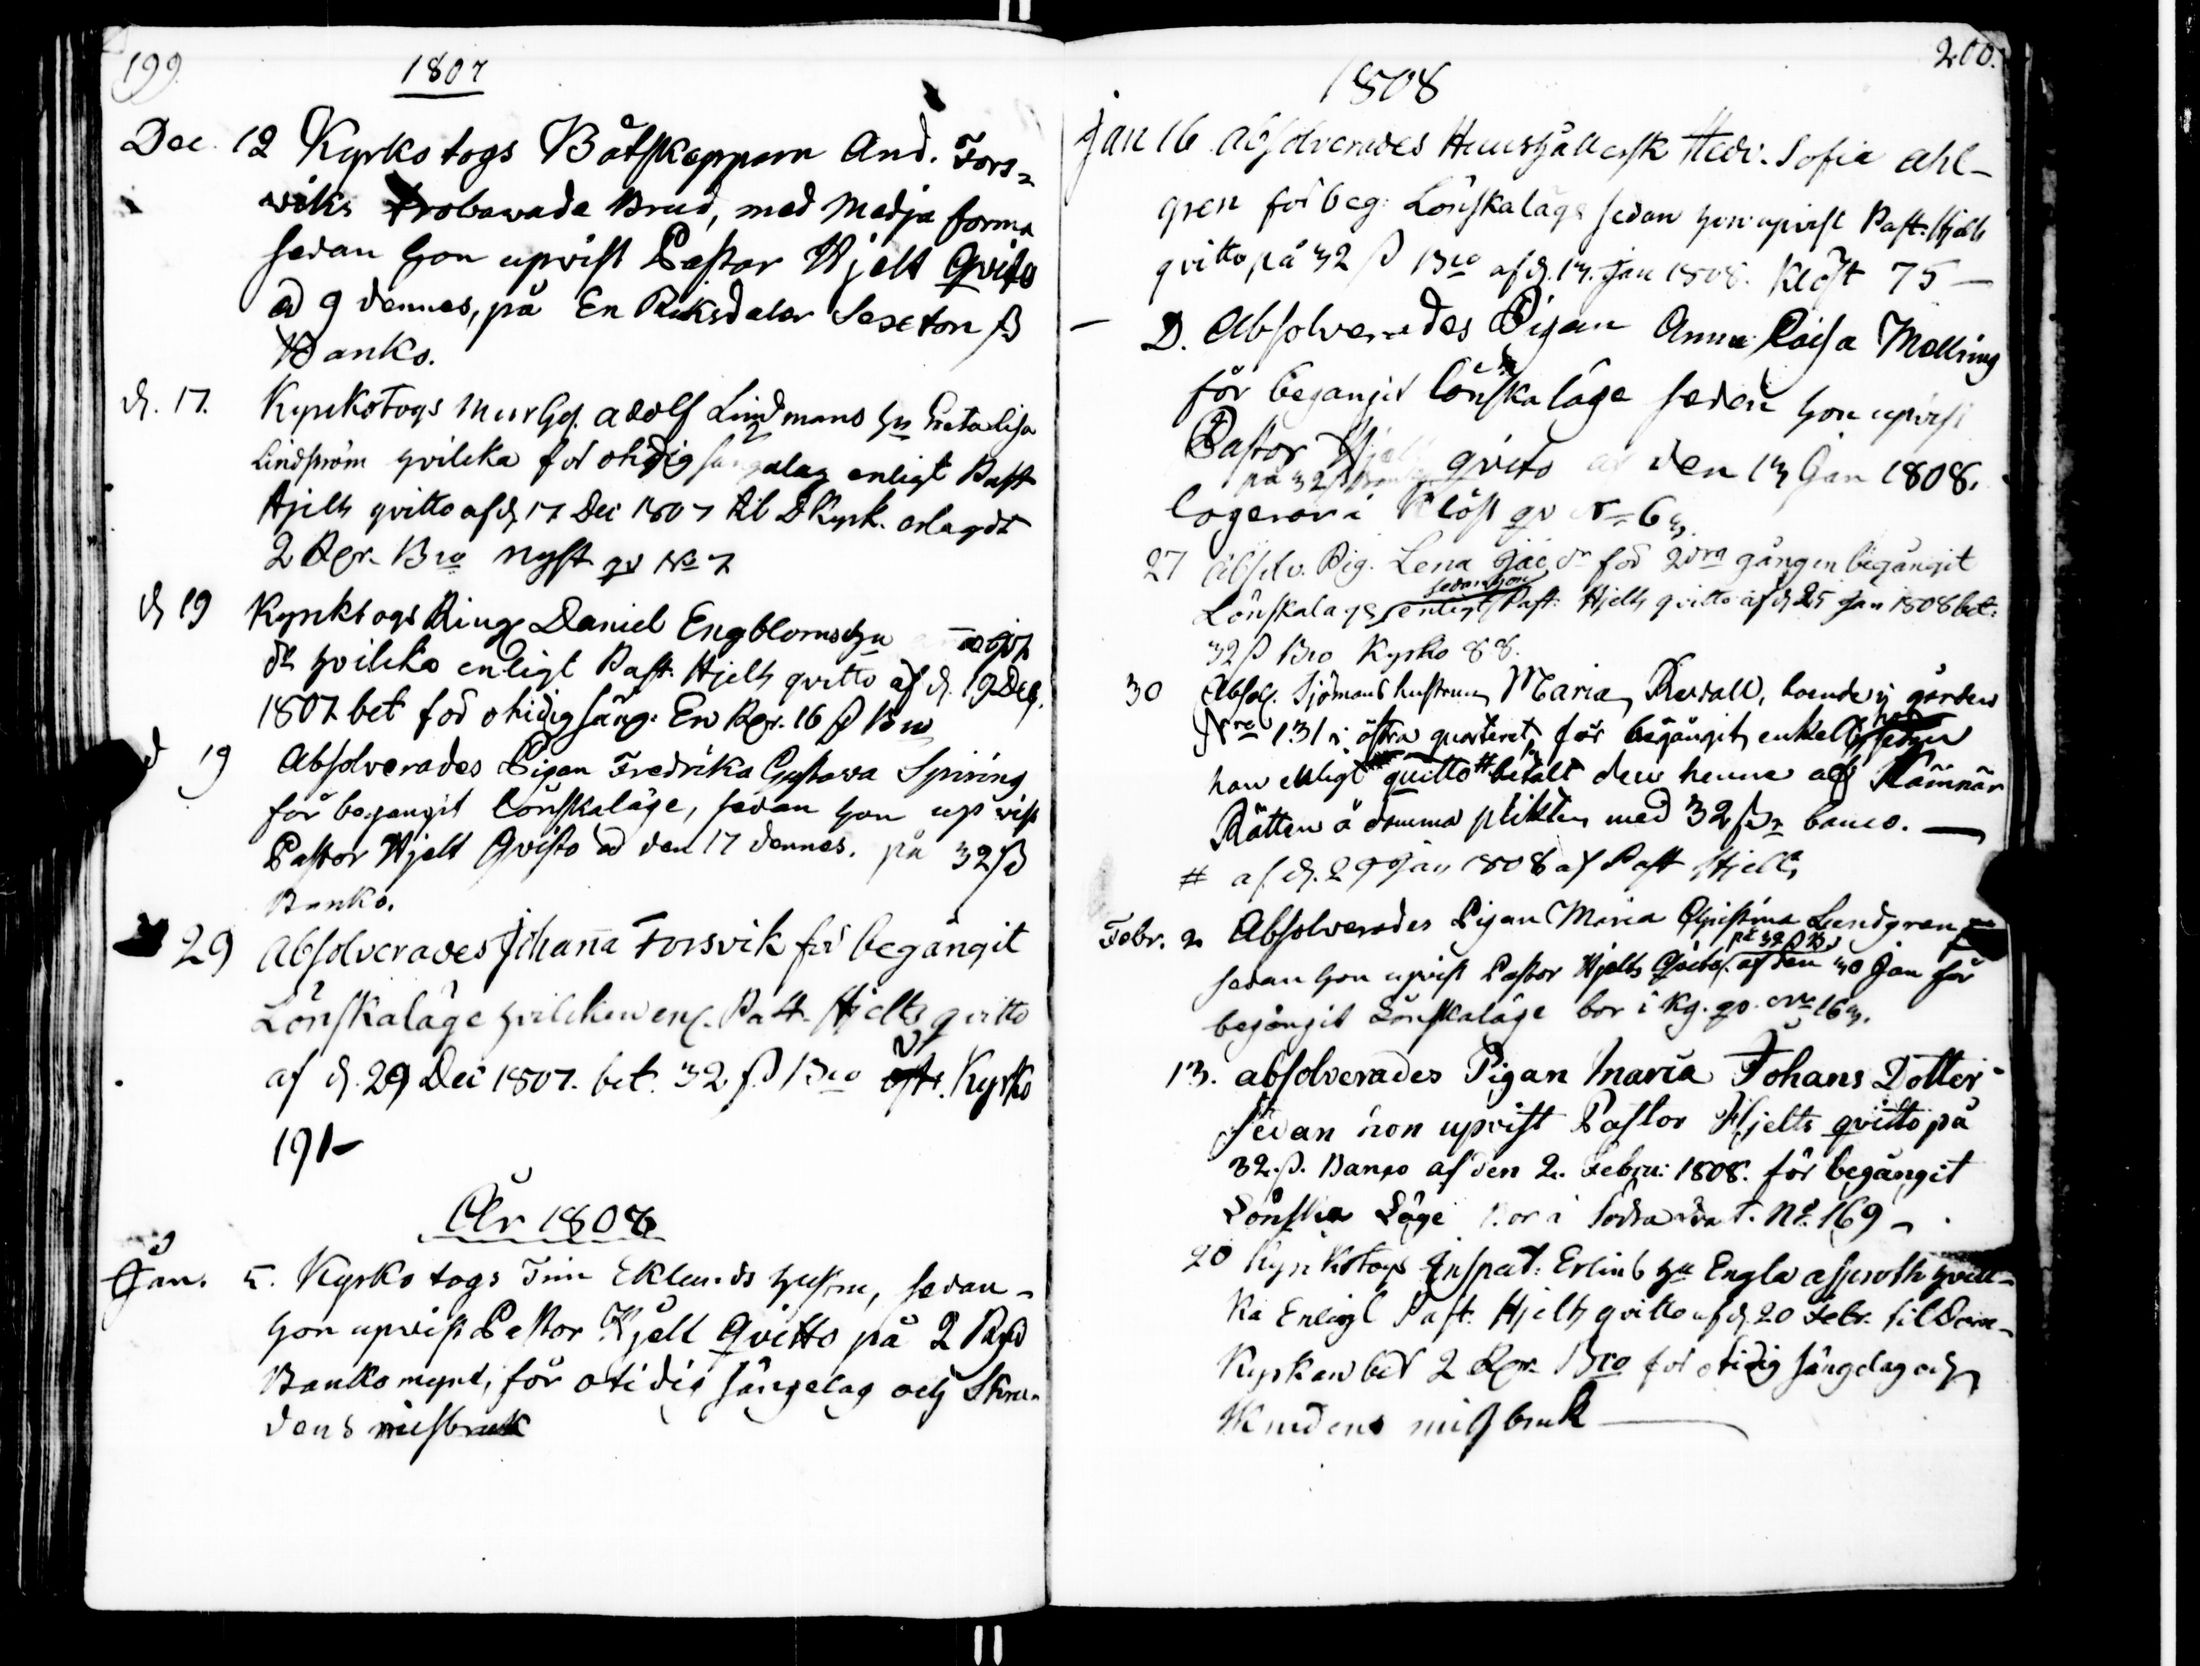 199.
1807
Dec. 12 Kyrkotogs Båtskepparn And. Fors=
wiks trolowade Brud, med Medja forma
sedan hon upvist Pastor Hjelt Qvito
ad 9 dennes, på En Riksdaler Sexton ß
Banko.
d. 17. Kyrkotogs Murges. Adolf Lindmans hu Greta Lisa
Lindström hvilcka för otidig sängalag enligt Past
Hjelts qvitto af d. 17 Dec 1807 til DKyrk. erlagdt
2 Rdr. Bco Nyst qv No 7
d 19 Kyrktogs Ring Daniel Engbloms hu
dr hvilcka enligt Past. Hjelts qvitto af d. 19 Dec.
1807 bet för otidig säng: En Rdr. 16 ß Bco
d 19 Absolverades Pigan Fredrika Gustava Spiring
för begangit Lönskaläge, sedan hon upvist
Pastor Hjelt Qvisto ad den 17 dennes. på 32 ß
Banko.
29 Absolverades Johanna Forsvik för begångit
Lönskaläge hvilcken enl. Past. Hjelts qvitto
af d. 29 Dec 1807. bet. 32 ß Bco Kyrko
191-
År 1808
Jan. 5. Kyrkotogs Tim Eklunds hustru, sedan
hon upvist Pastor Hjelt Qvitto på 2 Rd
Banko mynt, för otidig sängelag och Skru-
dens misbruk
200.
1808
Jan 16 Absolverades Hushållersk Hedv. Sofia Ahl-
gren för beg. Lönskaläge sedan hon upvist Past. Hjelts
qvitto på 32 ß Bco af d. 13. Jan 1808. Klöft 75 —
— D. Absolverades Pigan Anna Caisa Mellring
för begangit lönskaläge sedan hon upvist
Pastor Hjelt qvito af den 13 Jan 1808.
på 32 ß
logerar i Klöft qv No 63.
27 Absolv. Pig. Lena för 2dra gången begångit
sedan hon
Lönskaläge enligt Past: Hjelts qvitto af d 25 Jan 1808 bet:
32 ß Bco Kyrko 88.
30 Absol. Sjömans hustrun Maria Revall, boende i gården
Nro 131 i östra quarteret för begångit enkelt
hon enligt quitto # betalt den henne af Kämnär
Rätten ådömma plikten med 32 ß banco. —
# af d. 29 Jan 1808 af Past Hjelt
Febr. 2 Absolverades Pigan Maria Christina Lundgren
på 32 ß B
sedan hon upvist Pastor Hjelts Qvito af den 30 Jan för
begångit Lönskaläge bor i Kg. qv. No 163.
13. absolverades Pigan Maria Johans Dotter
sedan hon upvist Pastor Hjelts qvitto på
32. ß. Banco af den 2. Febru: 1808. för begångit
Lönska Läge bor i Södra No. 169 —
20 Kyrkotogs Inspect: Erlins hu Engla hvill-
ka Enligt Past. Hjelts qvitto af d. 20 Febr. til Dom-
Kyrkan bet 2 Rdr. Bco för otidig sängelag och
Skrudens missbruk —